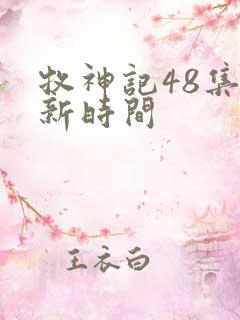 牧神記48集
新時間
王衣白